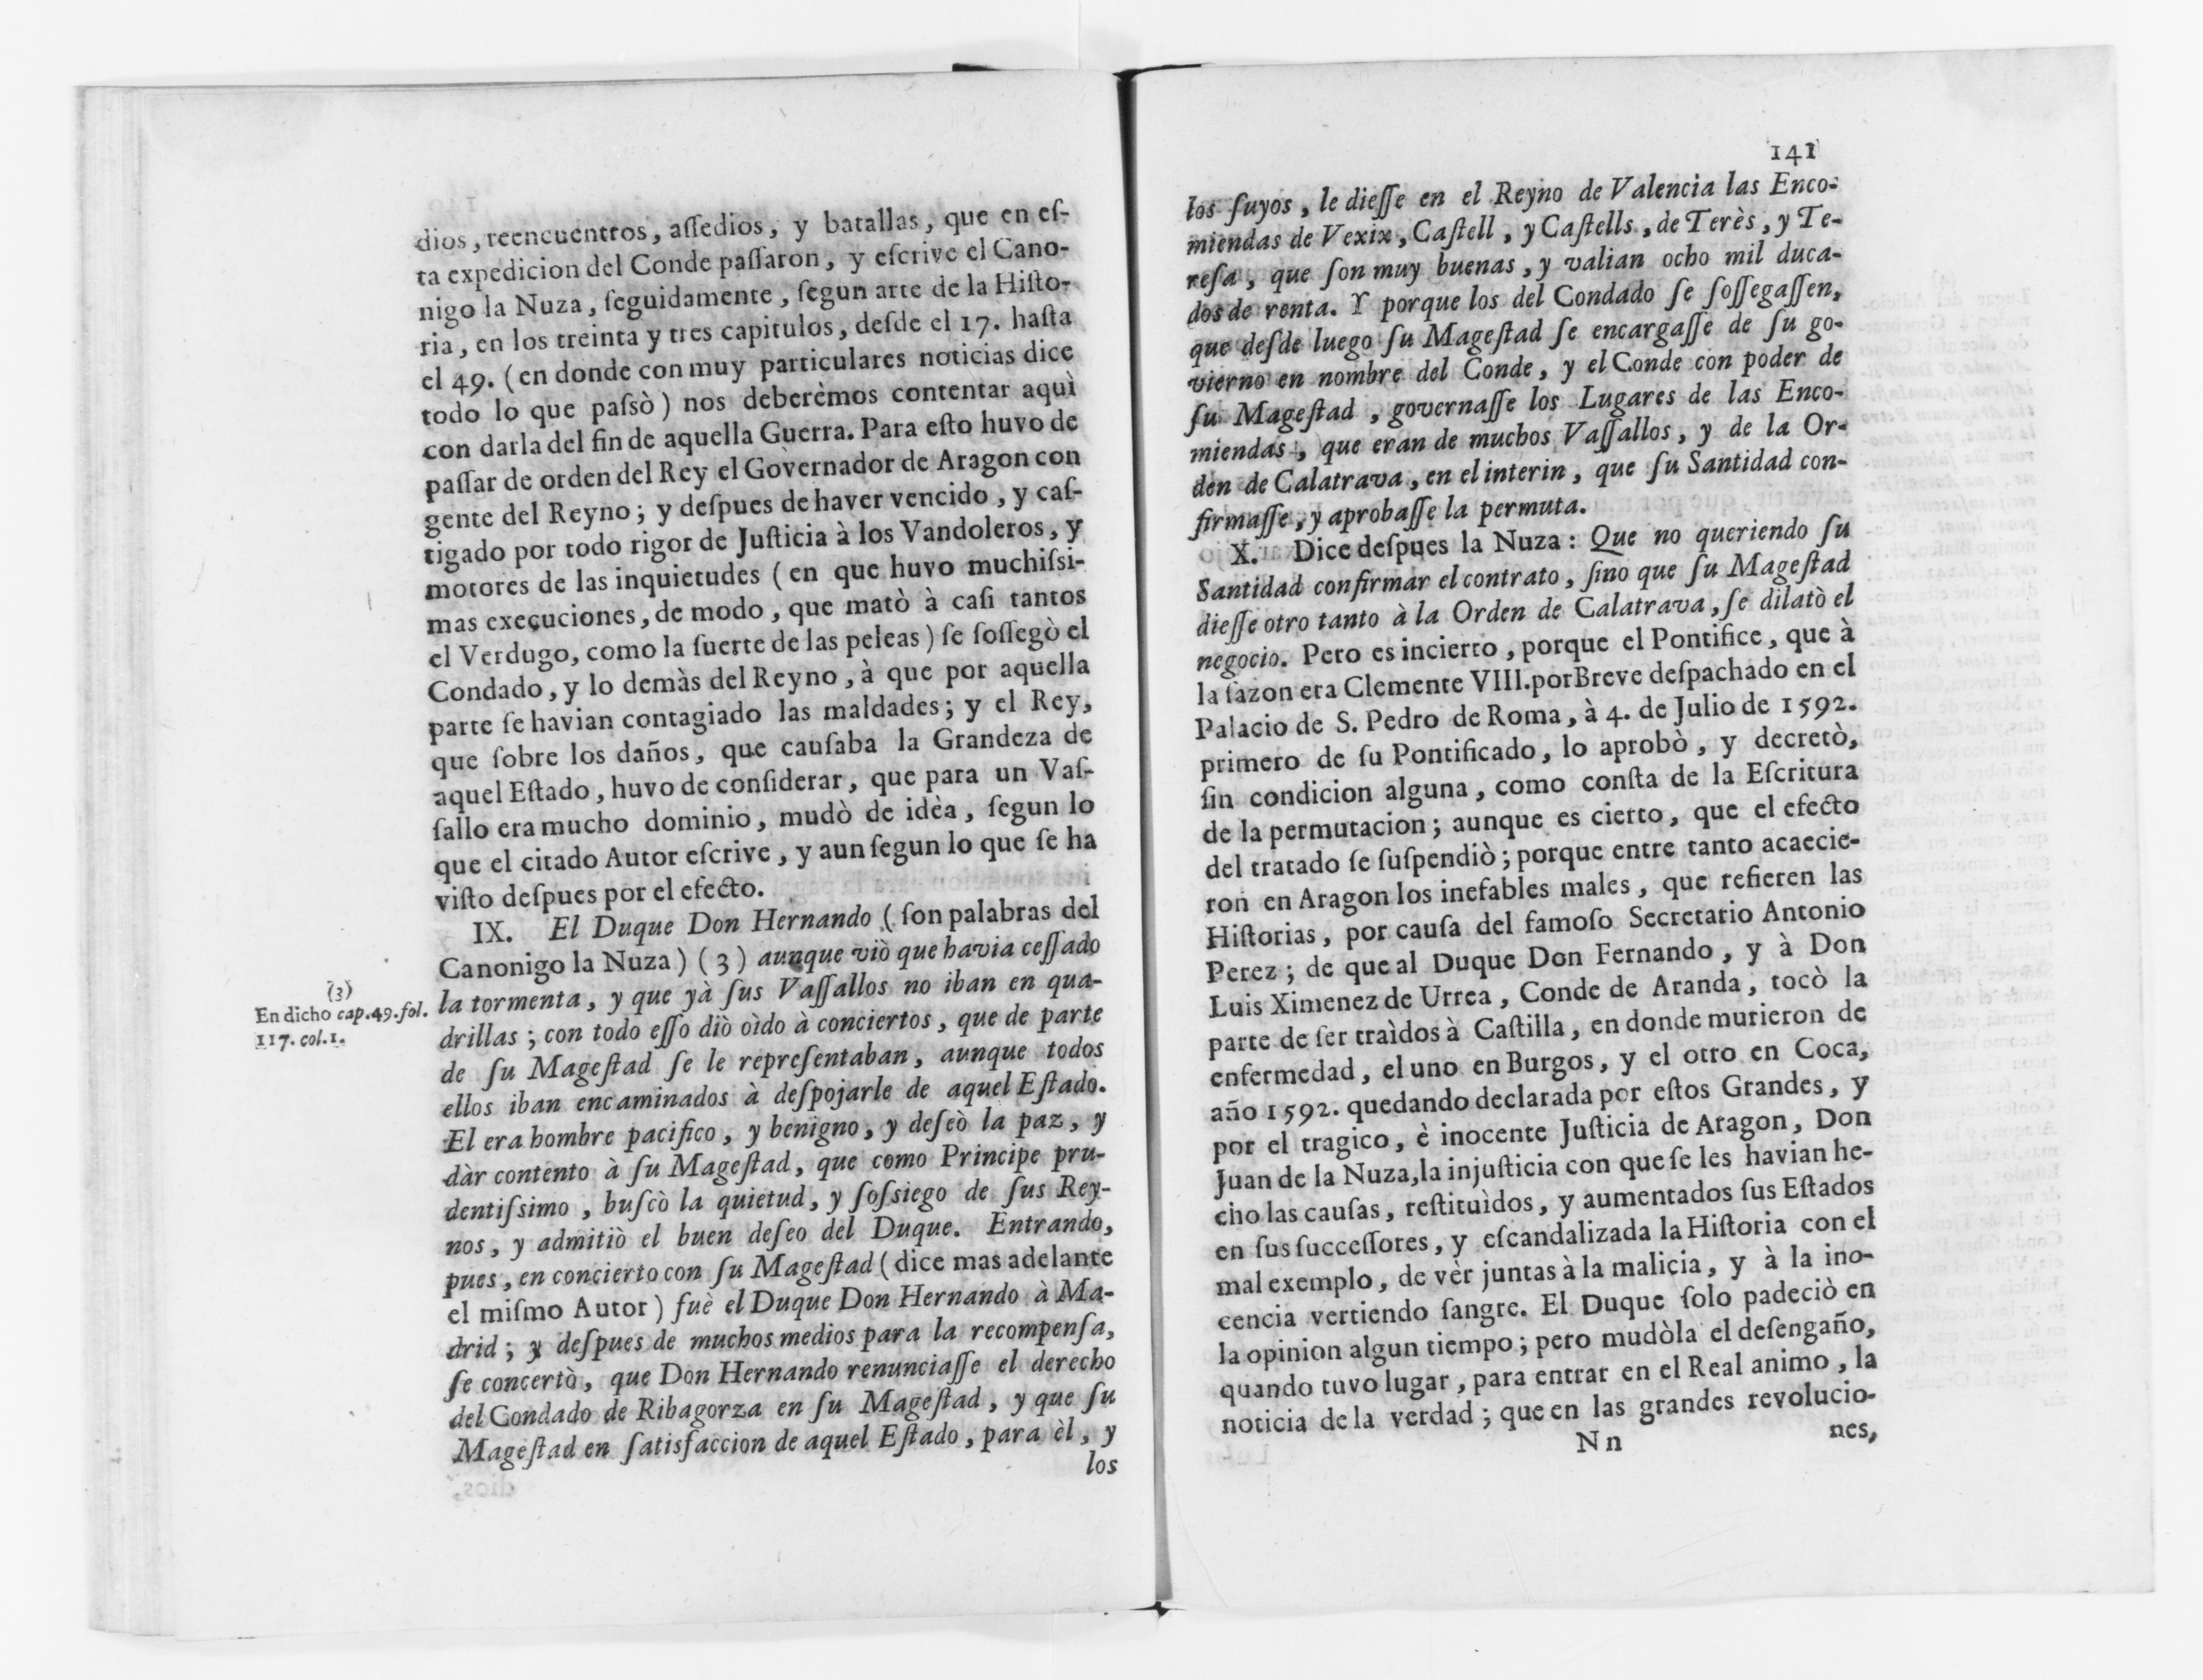 dios, reencuentros, assedios, y batallas, que en eſ-
ta expedicion del Conde paſſaron, y eſcrive el Cano-
nigo la Nuza, ſeguidamente, ſegun arte de la Hiſto-
ria, en los treinta y tres capitulos, deſde el 17. haſta
el 49. (en donde con muy particulares noticias dice
todo lo que paſsò) nos deberèmos contentar aquì
con darla del fin de aquella Guerra. Para eſto huvo de
paſſar de orden del Rey el Governador de Aragon con
gente del Reyno; y deſpues de haver vencido, y caſ-
tigado por todo rigor de Juſticia à los Vandoleros, y
motores de las inquietudes (en que huvo muchiſsi-
mas execuciones, de modo, que matò à caſi tantos
el Verdugo, como la ſuerte de las peleas) ſe ſoſſegò el
Condado, y lo demàs del Reyno, à que por aquella
parte ſe havian contagiado las maldades; y el Rey,
que ſobre los daños, que cauſaba la Grandeza de
aquel Eſtado, huvo de conſiderar, que para un Vaſ-
ſallo era mucho dominio, mudò de idèa, ſegun lo
que el citado Autor eſcrive, y aun ſegun lo que ſe ha
viſto deſpues por el efecto.
IX. El Duque Don Hernando (ſon palabras del
Canonigo la Nuza) (3) aunque viò que havia ceſſado
la tormenta, y que yà ſus Vaſſallos no iban en qua-
drillas; con todo eſſo diò oìdo à conciertos, que de parte
de ſu Mageſtad ſe le repreſentaban, aunque todos
ellos iban encaminados à deſpojarle de aquel Eſtado.
El era hombre pacifico, y benigno, y deſeò la paz, y
dàr contento à ſu Mageſtad, que como Principe pru-
dentiſsimo, buſcò la quietud, y ſoſsiego de ſus Rey-
nos, y admitiò el buen deſeo del Duque. Entrando,
pues, en concierto con ſu Mageſtad (dice mas adelante
el miſmo Autor) fuè el Duque Don Hernando à Ma-
drid; y deſpues de muchos medios para la recompenſa,
ſe concertò, que Don Hernando renunciaſſe el derecho
del Condado de Ribagorza en ſu Mageſtad, y que ſu
Mageſtad en ſatisfaccion de aquel Eſtado, para èl, y
los
(3)
En dicho cap. 49. fol.
117. col. 1.
141
los ſuyos, le dieſſe en el Reyno de Valencia las Enco-
miendas de Vexix, Caſtell, y Caſtells, de Terès, y Te-
reſa, que ſon muy buenas, y valian ocho mil duca-
dos de renta. Y porque los del Condado ſe ſoſſegaſſen,
que deſde luego ſu Mageſtad ſe encargaſſe de ſu go-
vierno en nombre del Conde, y el Conde con poder de
ſu Mageſtad, governaſſe los Lugares de las Enco-
miendas, que eran de muchos Vaſſallos, y de la Or-
den de Calatrava, en el interin, que ſu Santidad con-
firmaſſe, y aprobaſſe la permuta.
X. Dice deſpues la Nuza: Que no queriendo ſu
Santidad confirmar el contrato, ſino que ſu Mageſtad
dieſſe otro tanto à la Orden de Calatrava, ſe dilatò el
negocio. Pero es incierto, porque el Pontifice, que à
la ſazon era Clemente VIII. por Breve deſpachado en el
Palacio de S. Pedro de Roma, à 4. de Julio de 1592.
primero de ſu Pontificado, lo aprobò, y decretò,
ſin condicion alguna, como conſta de la Eſcritura
de la permutacion; aunque es cierto, que el efecto
del tratado ſe ſuſpendiò; porque entre tanto acaecie-
ron en Aragon los inefables males, que refieren las
Hiſtorias, por cauſa del famoſo Secretario Antonio
Perez; de que al Duque Don Fernando, y à Don
Luis Ximenez de Urrea, Conde de Aranda, tocò la
parte de ſer traìdos à Caſtilla, en donde murieron de
enfermedad, el uno en Burgos, y el otro en Coca,
año 1592. quedando declarada por eſtos Grandes, y
por el tragico, è inocente Juſticia de Aragon, Don
Juan de la Nuza, la injuſticia con que ſe les havian he-
cho las cauſas, reſtituìdos, y aumentados ſus Eſtados
en ſus ſucceſſores, y eſcandalizada la Hiſtoria con el
mal exemplo, de vèr juntas à la malicia, y à la ino-
cencia vertiendo ſangre. El Duque ſolo padeciò en
la opinion algun tiempo; pero mudòla el deſengaño,
quando tuvo lugar, para entrar en el Real animo, la
noticia de la verdad; que en las grandes revolucio-
Nn nes,